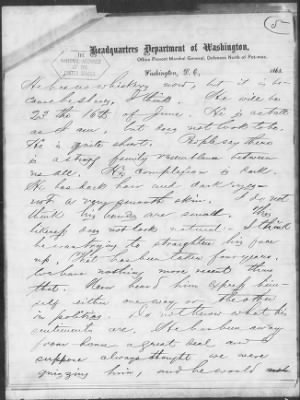 5
IN THE
NATIONAL ARCHIVES
OF THE
UNITED STATES
Headquarters Department of Washington,
Office Provost Marshal General, Defences North of Potomac,
Washington, D. C., 186
He has no whiskers now, but it is
because he shaves, I think. He will be
23 the 16th of June. He is as tall
as I am, but does not look to be.
He is quite short. People say there
is a strong family resemblance between
us all. His complexion is dark.
He has dark hair and dark eyes
not a very smooth skin. I do not
think his hands are small. This
likeness does not look natural. I think
he was trying to straighten his face
up. That has been taken four years.
We have nothing more recent than
that. Never heard him express him-
self either one way or the other
in politics. Do not know what his
sentiments are. He has been away
from home a great deal and I
suppose always thought we were
quizzing him, and he would not